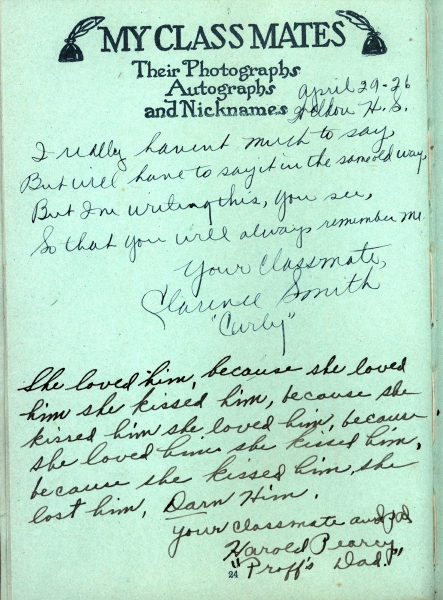 MY CLASS MATES
Their Photographs
Autographs
and Nicknames
April 29-26
Holdou H.S.
I really havent much to say,
But will have to say it in the same old way,
But I'm writing this, you see,
So that you will always remember me.
Your Classmate,
Clarence Smith
"Curly"
She loved him, because she loved
him she kissed him, because she
kissed him she loved him, because
she loved him she kissed him,
because she kissed him, she
lost him, Darn Him.
Your classmate and pal
Harold Pearcy
"Proff's Dad."
24